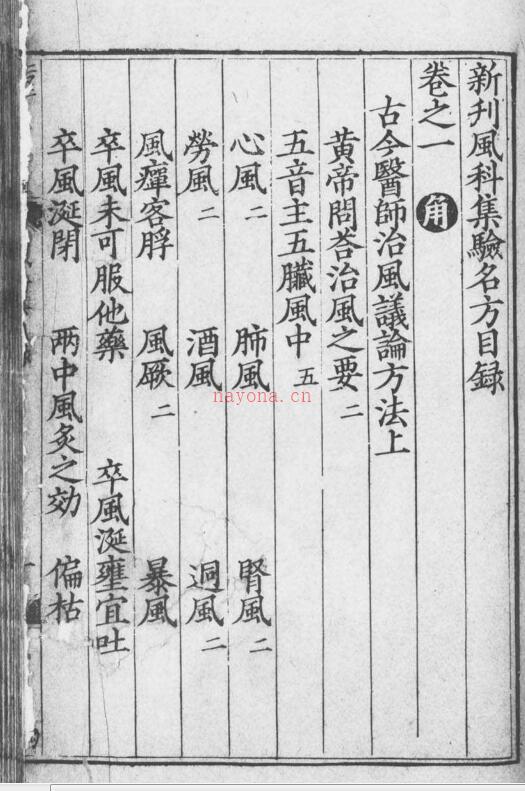 新刋風科集驗名方目録
卷之一 角
古今醫師治風議論方法上
黄帝問荅治風之要 二
五音主五臟風中 五
心風 二 肺風 腎風 二
勞風 二 酒風 迵風 二
風癉客脬 風厥 二 暴風
卒風未可服他藥 卒風涎壅宜吐
卒風涎閉 兩中風灸之効 偏枯
nayona.cn